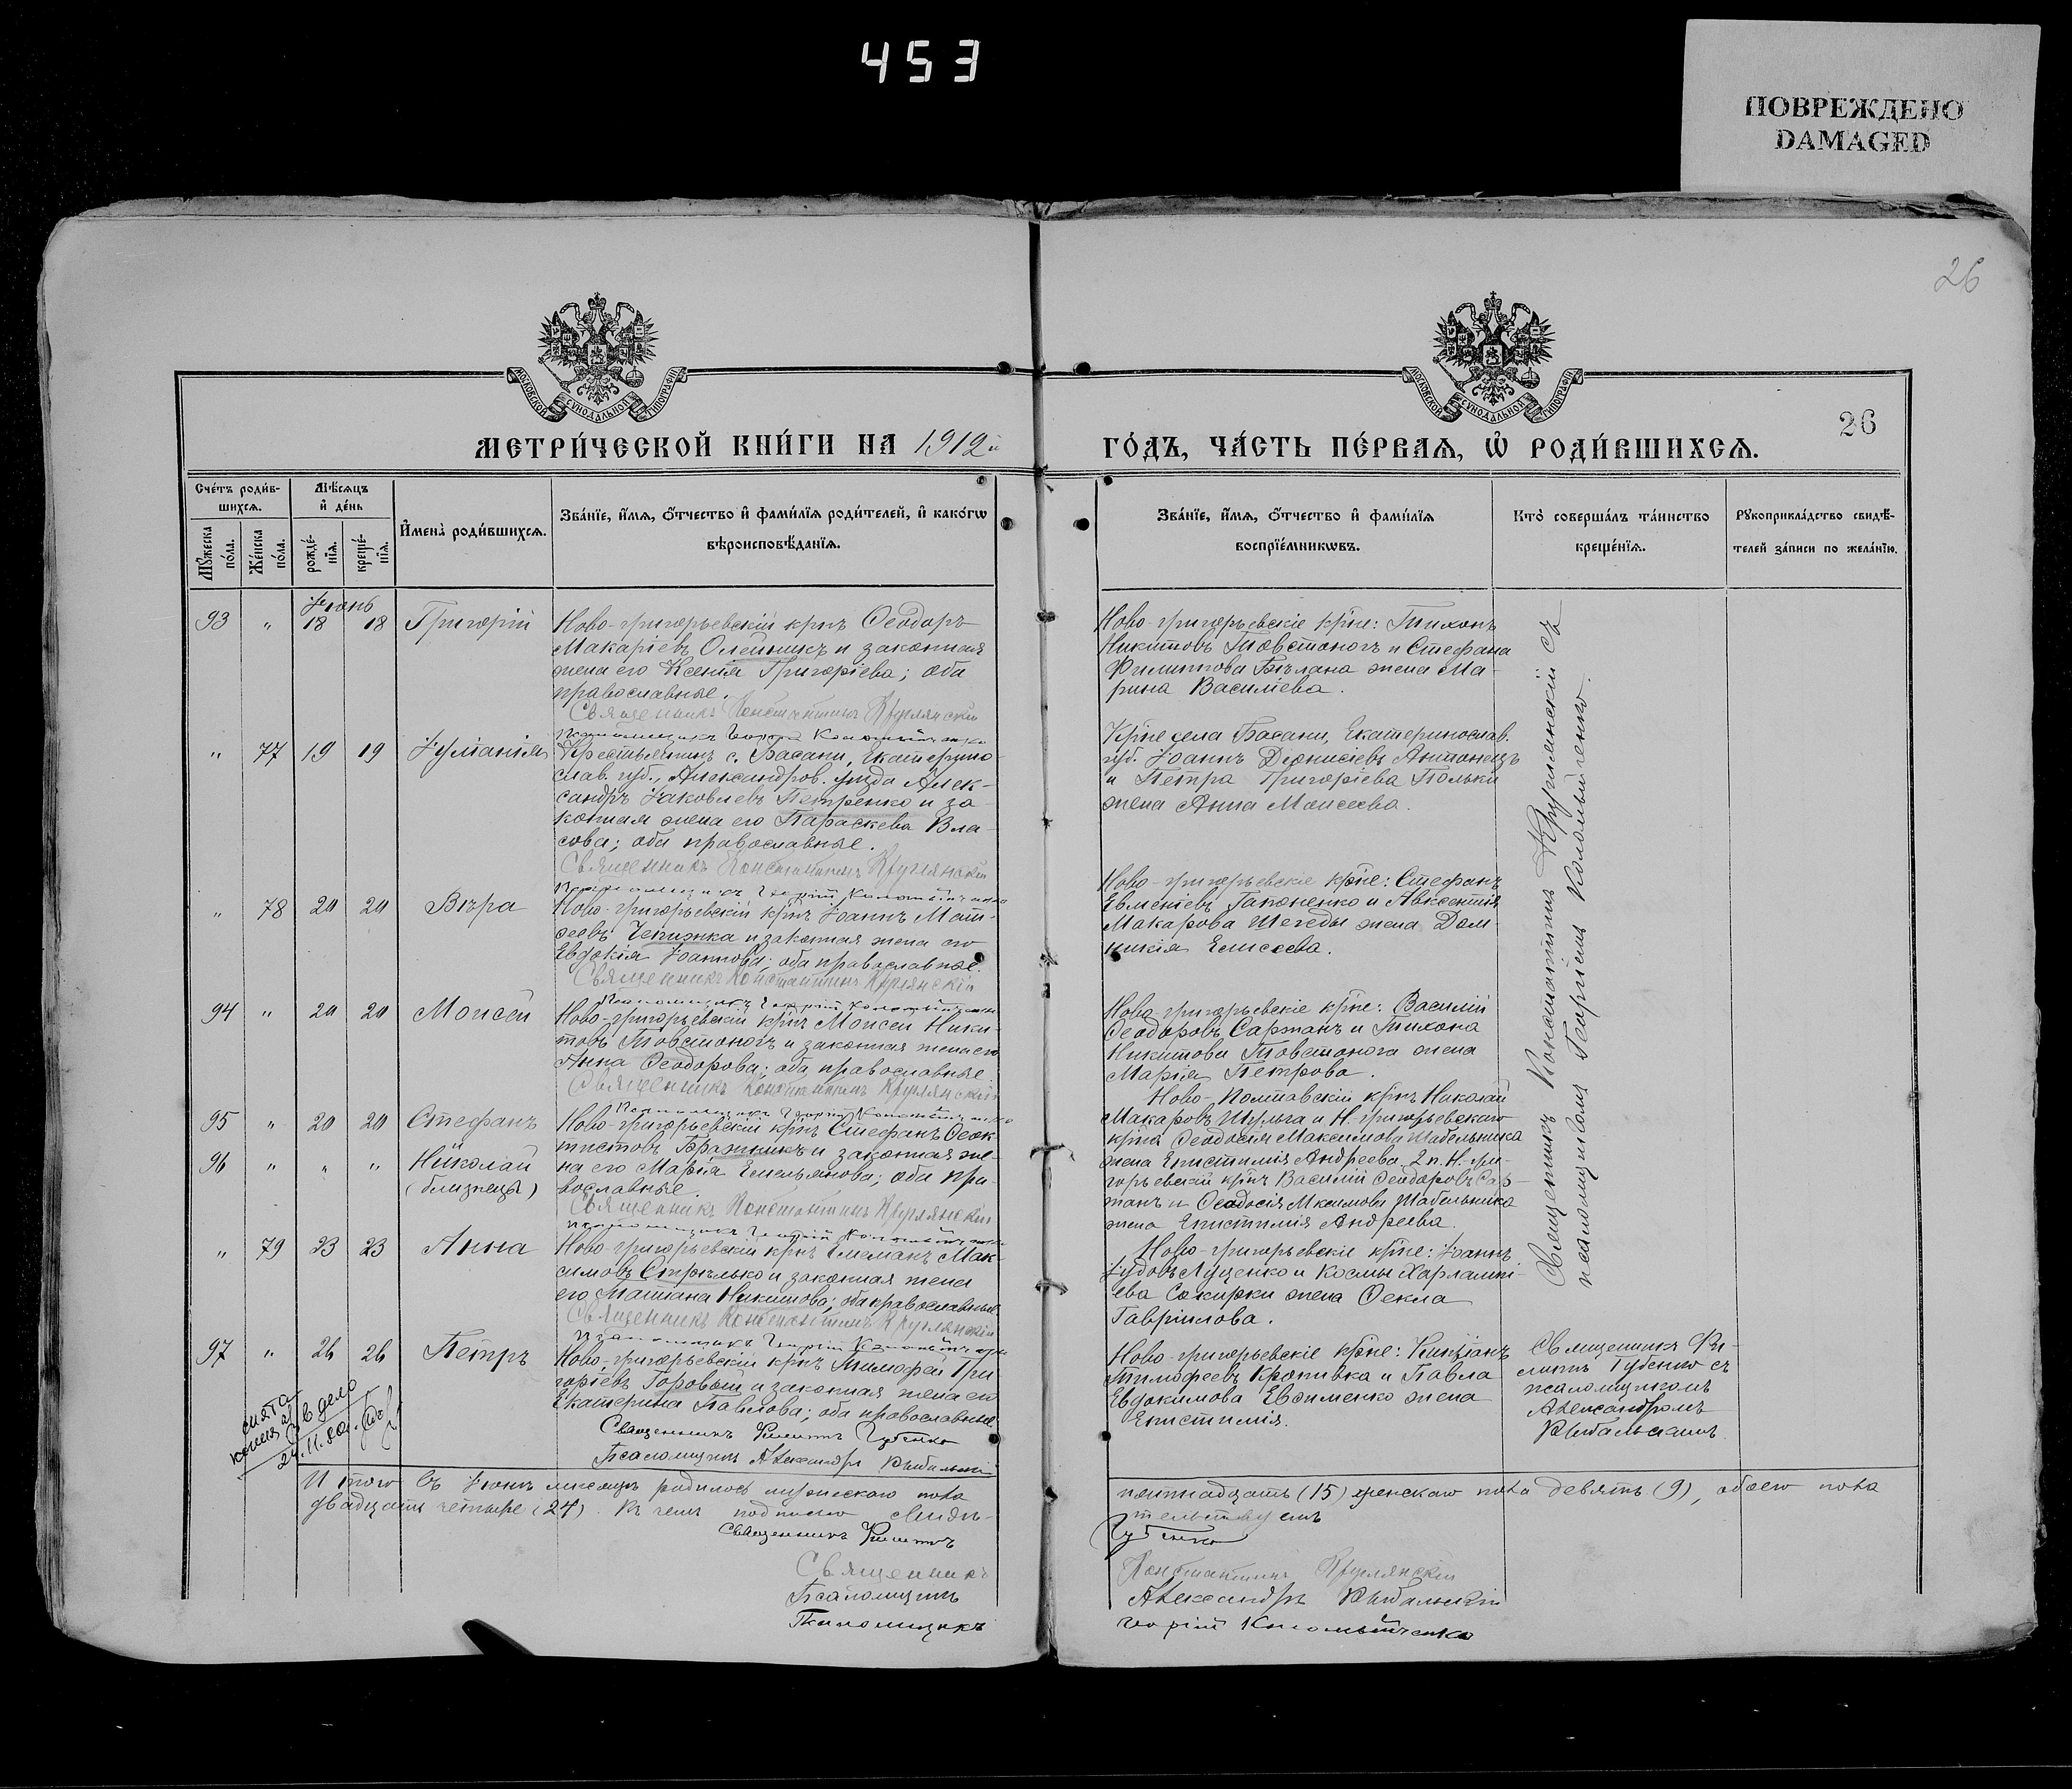 453
ПОВРЕЖДЕНО
DAMAGED
26
МОСКОВСКОЙ СѴНОДАЛЬНОЙ ТИПОГРАФІИ
МОСКОВСКОЙ СѴНОДАЛЬНОЙ ТИПОГРАФІИ
26
МЕТРИ́ЧЕСКОЙ КНИ́ГИ НА 1912й
ГО́ДЪ, ЧА́СТЬ ПЕ́РВАѦ, Ѡ҆ РОДИ́ВШИХСѦ.
Сче́тъ роди́в-
шихсѧ.
Мѣ́сѧцъ
и҆ де́нь
Мꙋ́жеска
по́ла.
Же́нска
по́ла.
рожде́-
нїѧ.
креще́-
нїѧ.
И҆мена̀ роди́вшихсѧ.
Зва́нїе, и҆́мѧ, ѻ҆́тчество и҆ фами́лїѧ роди́телей, и҆ како́гѡ
вѣроисповѣ́данїѧ.
Зва́нїе, и҆́мѧ, ѻ҆́тчество и҆ фами́лїѧ
воспрїе́мникѡвъ.
Кто̀ соверша́лъ та́инство
креще́нїѧ.
Рꙋкоприкла́дство свидѣ́-
телей за́писи по жела́нїю.
Іюнь
93 " 18 18 Григорій
Ново-григорьевскій крнъ Ѳеодоръ
Макаріевъ Олейникъ и законная
жена его Ксенія Григоріева; оба
православные.
Священникъ Константинъ Круглянскій
Псаломщикъ Георгій Коломыйченко
Ново-григорьевскіе крне: Тихонъ
Никитовъ Товстоногъ и Стефана
Филиппова Бѣлана жена Ма-
рина Василіева.
" 77 19 19 Іуліанія
Крестьянинъ с. Басани, Екатерино-
слав. губ., Александров. уѣзда Алек-
сандръ Іаковлевъ Петренко и за-
конная жена его Параскева Вла-
сова; оба православные.
Священникъ Константинъ Круглянскій
Псаломщикъ Георгій Коломыйченко
Крне села Басани, Екатеринослав.
губ. Іоаннъ Діонисіевъ Антонецъ
и Петра Григоріева Польки
жена Анна Моисеева.
" 78 20 20 Вѣра
Ново-григорьевскій крнъ Іоаннъ Мат-
ѳеевъ Чепижка и законная жена его
Евдокія Іоаннова; оба православные.
Священникъ Константинъ Круглянскій
Псаломщикъ Георгій Коломыйченко
Ново-григорьевскіе крне: Стефанъ
Евменіевъ Гапоненко и Авксентія
Макарова Шегеды жена Дом-
никія Елисеева.
94 " 20 20 Моисей
Ново-григорьевскій крнъ Моисей Ники-
товъ Товстоногъ и законная жена его
Анна Ѳеодорова; оба православные.
Священникъ Константинъ Круглянскій
Псаломщикъ Георгій Коломыйченко
Ново-григорьевскіе крне: Василій
Ѳеодоровъ Саржанъ и Тихона
Никитова Товстонога жена
Марія Петрова.
95 " 20 20 Стефанъ
96 " " " Николай
(близнецы)
Ново-григорьевскій крнъ Стефанъ Ѳеок-
тистовъ Бражникъ и законная же-
на его Марія Емельянова; оба пра-
вославные.
Священникъ Константинъ Круглянскій
Псаломщикъ Георгій Коломыйченко
Ново-Полтавскій крнъ Николай
Макаровъ Шульга и Н.-григорьевскаго
крна Ѳеодосія Максимова Шабельника
жена Епистимія Андреева. 2 п. Н.-гри-
горьевскій крнъ Василій Ѳеодоровъ Сар-
жанъ и Ѳеодосія Максимова Шабельника
жена Епистимія Андреева.
" 79 23 23 Анна
Ново-григорьевскій крнъ Мак-
симовъ Стрѣлько и законная жена
его Никитова; оба православные.
Священникъ Константинъ Круглянскій
Псаломщикъ Георгій Коломыйченко
Ново-григорьевскіе крне: Іоаннъ
Іудовъ Луценко и Космы Харлампі-
ева Сокирки жена Ѳекла
Гавріилова.
97 " 26 26 Петръ
Ново-григорьевскій крнъ Тимофей Гри-
горіевъ Горовый и законная жена его
Екатерина Павлова; оба православные
Священникъ Филиппъ Губенко
Псаломщикъ Александръ Рыбальскій
Ново-григорьевскіе крне: Кипріанъ
Тимофеевъ Кропивка и Павла
Евдокимова Евфименко жена
Епистимія.
Священникъ Фи-
липпъ Губенко съ
псаломщикомъ
Александромъ
Рыбальскимъ.
Священникъ Константинъ Круглянскій съ
псаломщикомъ Георгіемъ Коломыйченко.
снята
копия в дело
Итого въ Іюнѣ мѣсяцѣ родилось мужескаго пола
пятнадцать (15) женскаго пола девять (9), обоего пола
двадцать четыре (24). Въ чемъ подписью свидѣ-
тельствуемъ
Священникъ Филиппъ
Губенко
Священникъ
Константинъ Круглянскій
Псаломщикъ
Александръ Рыбальскій
Псаломщикъ
Георгій Коломыйченко